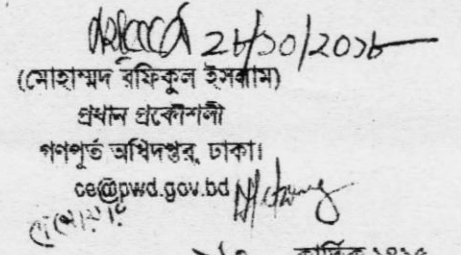 ২৮/১০/২০১৮
(মোহাম্মদ রফিকুল ইসলাম)
প্রধান প্রকৌশলী
গণপূর্ত অধিদপ্তর, ঢাকা।
ce@pwd.gov.bd
কার্তিক